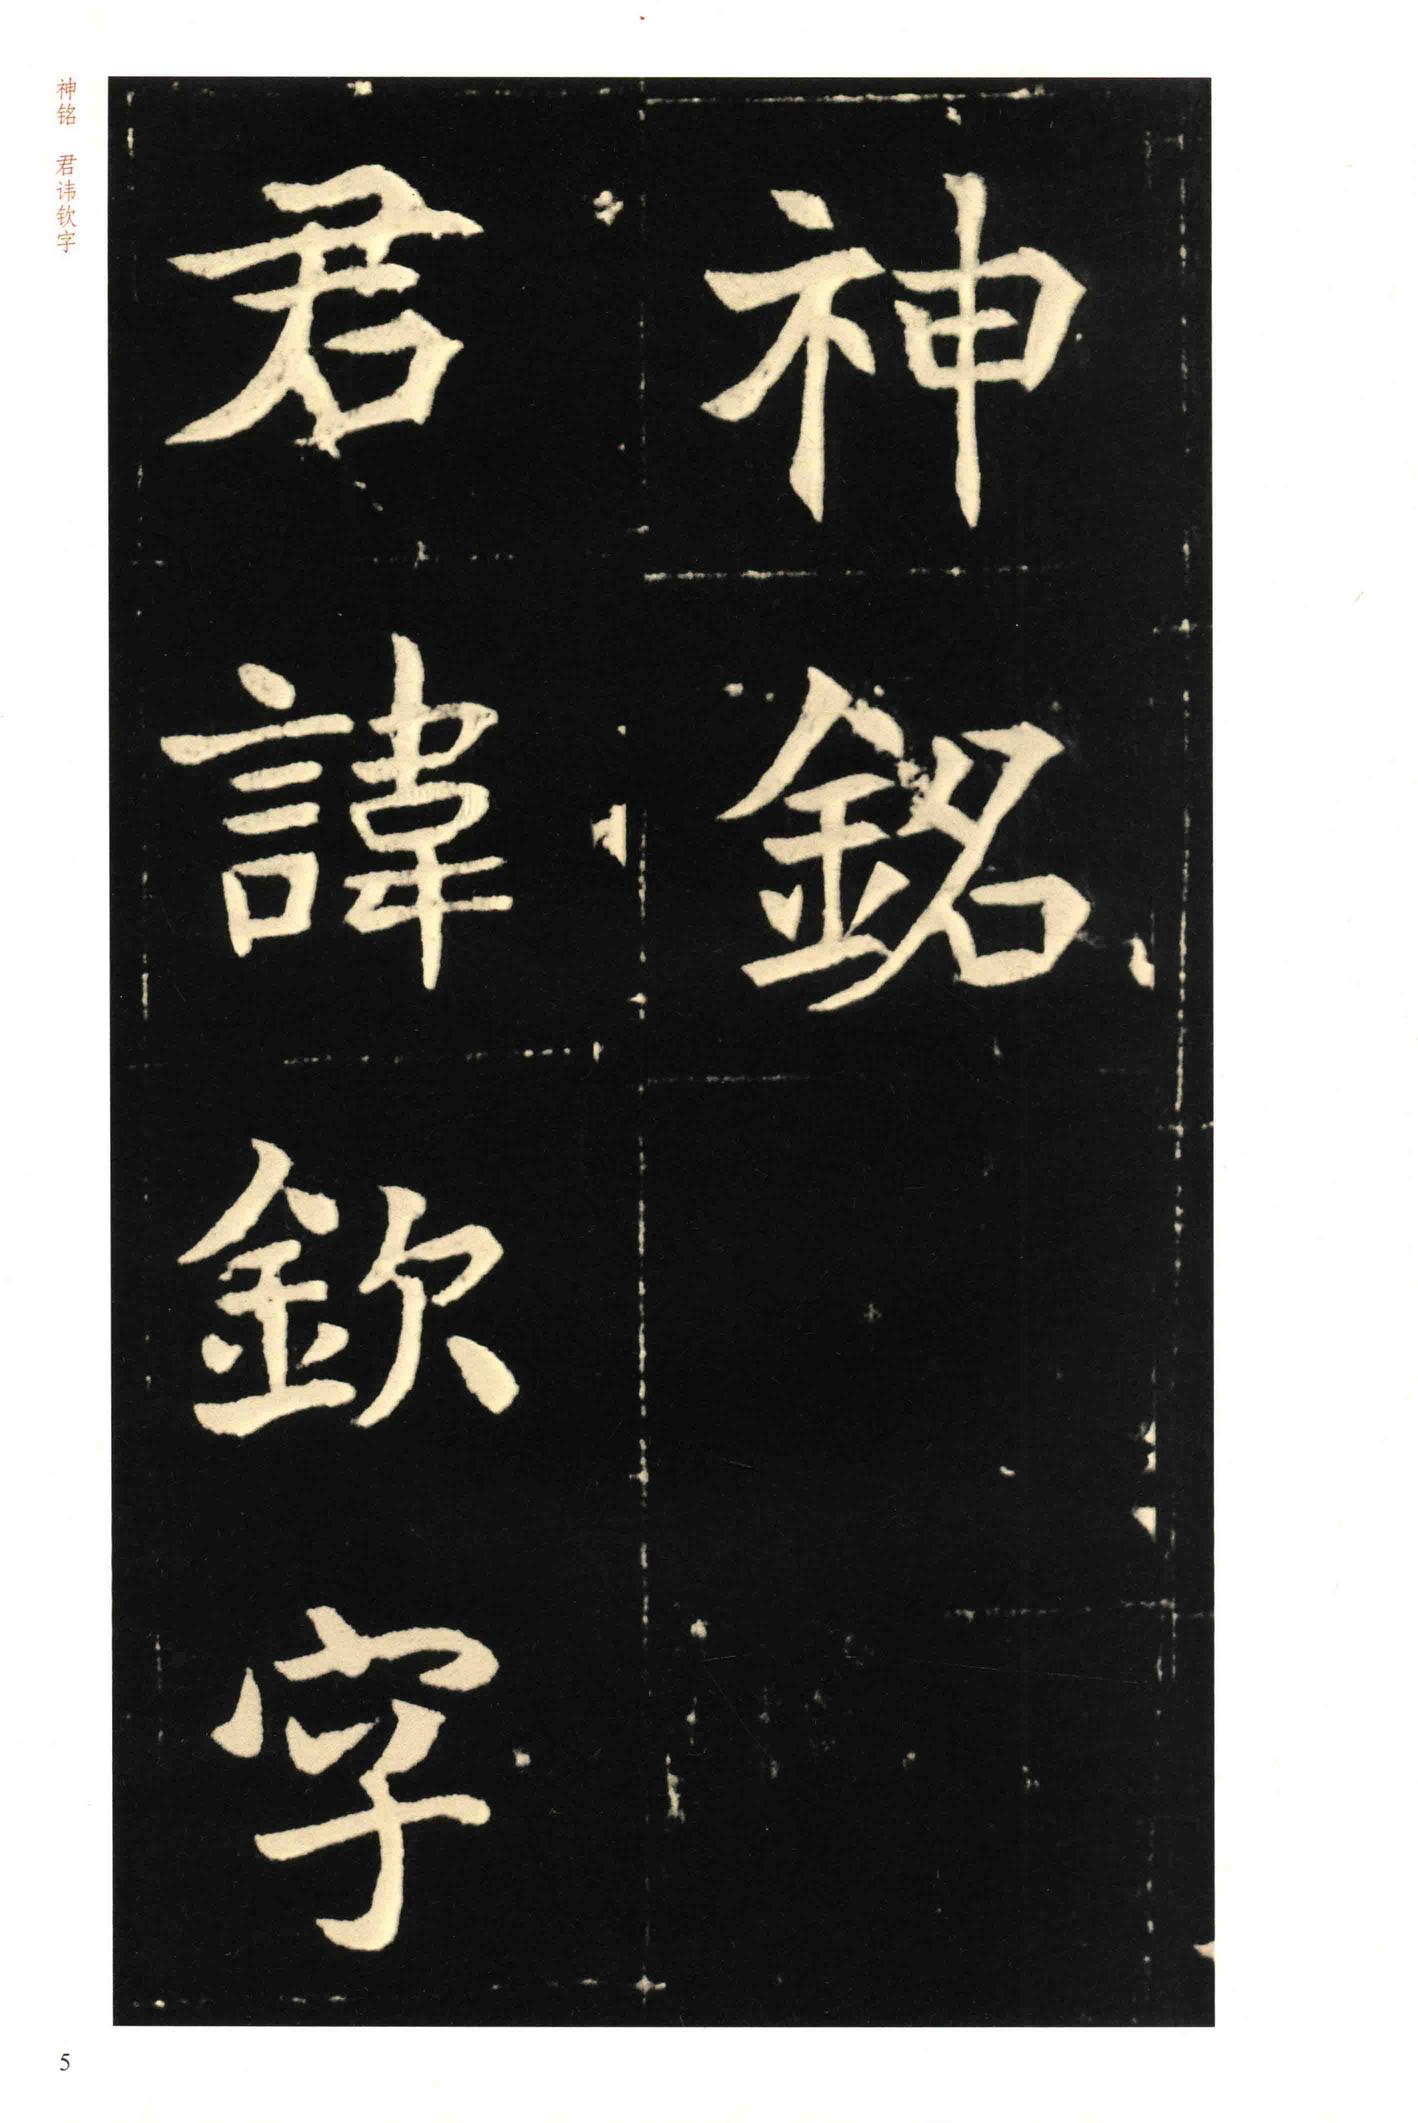 神銘
君諱欽字
神铭　君讳钦字
5